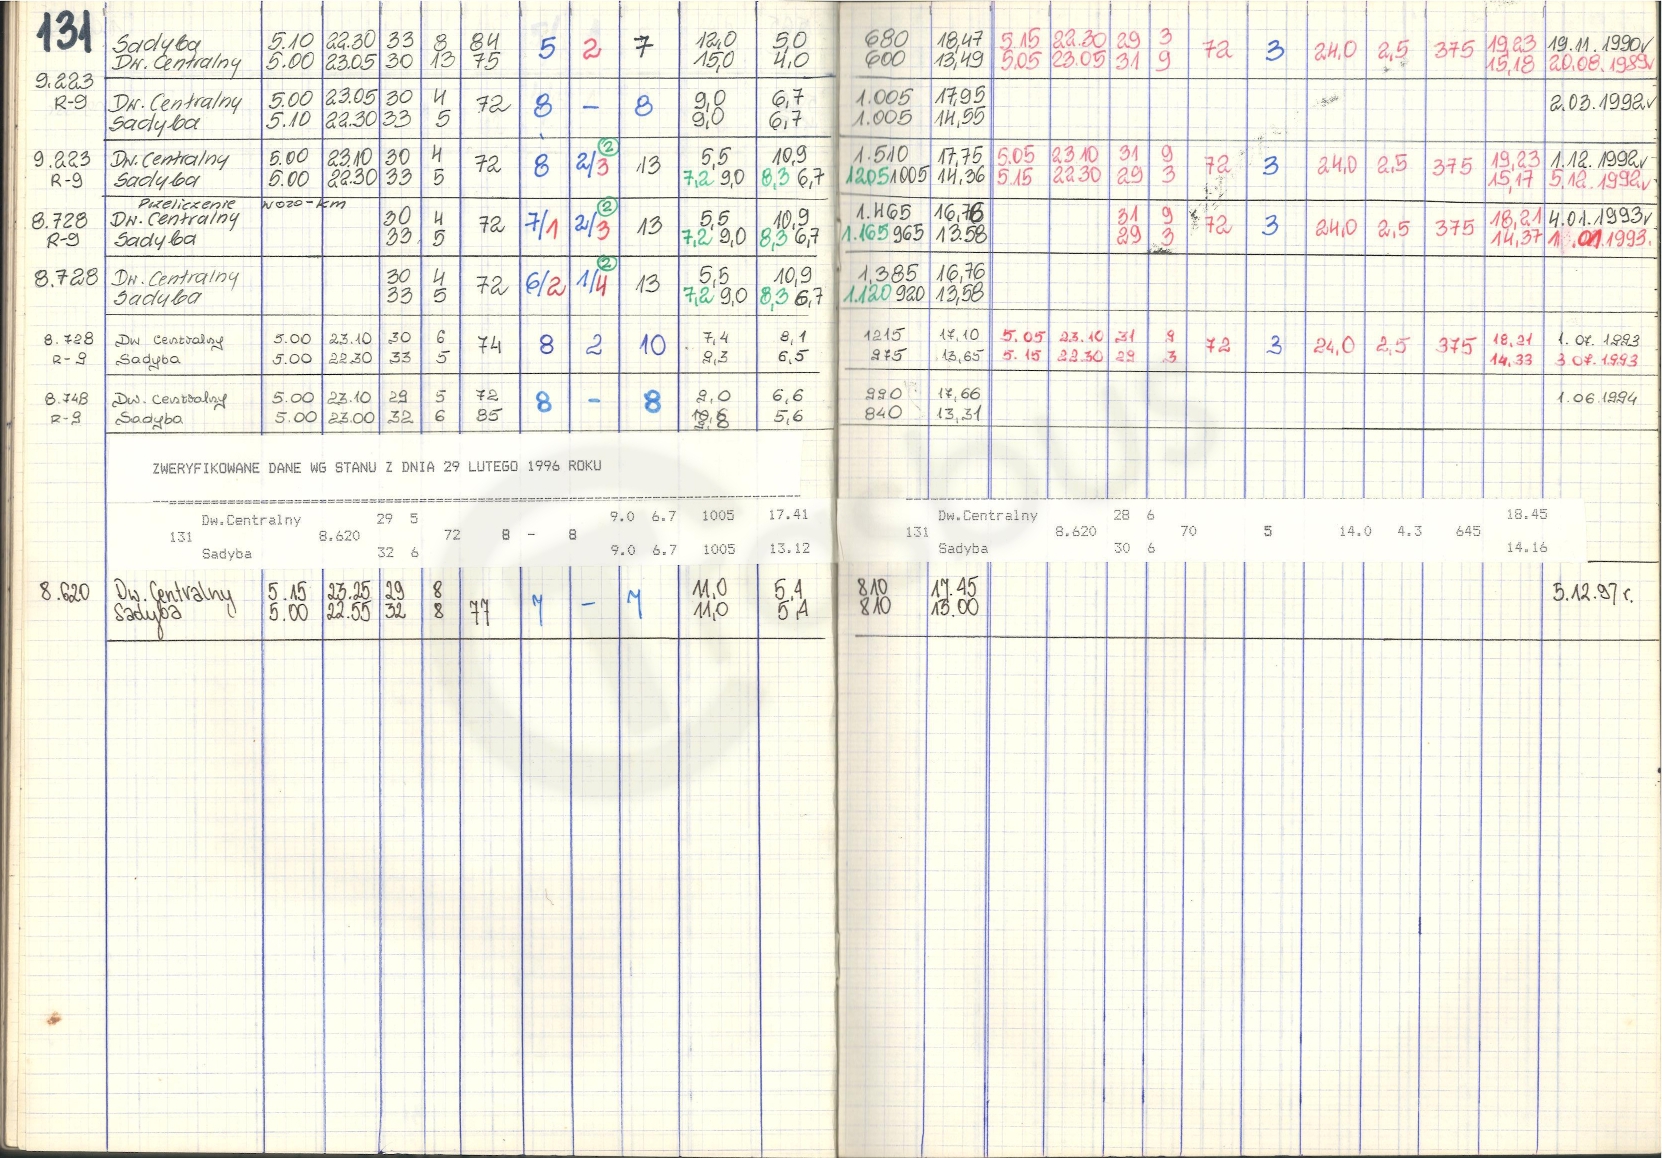 131
Sadyba 5.10 22.30 33 8 84 5 2 7 12,0 5,0 680 18,47 5.15 22.30 29 3 72 3 24,0 2,5 375 19,23 19.11.1990
Dw. Centralny 5.00 23.05 30 13 75 15,0 4,0 600 13,49 5.05 23.05 31 9 15,18 20.08.1989
9.223 Dw. Centralny 5.00 23.05 30 4 72 8 – 8 9,0 6,7 1.005 17,95 2.03.1992
R-9 Sadyba 5.10 22.30 33 5 9,0 6,7 1.005 14,55
9.223 Dw. Centralny 5.00 23.10 30 4 72 8 2/3 2 13 5,5 10,9 1.510 17,75 5.05 23.10 31 9 72 3 24,0 2,5 375 19,23 1.12.1992
R-9 Sadyba 5.00 22.30 33 5 7,2 9,0 8,3 6,7 1205 1005 14,36 5.15 22.30 29 3 15,17 5.12.1992
Przeliczenie wozo-km
8.728 Dw. Centralny 30 4 72 7/1 2/3 2 13 5,5 10,9 1.465 16,76 31 9 72 3 24,0 2,5 375 18,21 4.01.1993
R-9 Sadyba 33 5 7,2 9,0 8,3 6,7 1.165 965 13.58 29 3 14,37 1.01.1993.
8.728 Dw. Centralny 30 4 72 6/2 1/4 2 13 5,5 10,9 1,385 16,76
Sadyba 33 5 7,2 9,0 8,3 6,7 1.120 920 13,58
8.728 Dw Centralny 5.00 23.10 30 6 74 8 2 10 7,4 8,1 1215 17,10 5.05 23.10 31 9 72 3 24,0 2,5 375 18,21 1.07.1993
R-9 Sadyba 5.00 22.30 33 5 9,3 6,5 975 13,65 5.15 22.30 29 3 14,33 3 07.1993
8.748 Dw. Centralny 5.00 23.10 29 5 72 8 – 8 9,0 6,6 990 17,66 1.06.1994
R-9 Sadyba 5.00 23.00 32 6 85 5,6 840 13,31
ZWERYFIKOWANE DANE WG STANU Z DNIA 29 LUTEGO 1996 ROKU
Dw.Centralny 29 5 9.0 6.7 1005 17.41 Dw.Centralny 28 6 18.45
131 8.620 72 8 - 8 131 8.620 70 5 14.0 4.3 645
Sadyba 32 6 9.0 6.7 1005 13.12 Sadyba 30 6 14.16
8.620 Dw. Centralny 5.15 23.25 29 8 77 7 – 7 11,0 5,1 810 17.45 5.12.97 r.
Sadyba 5.00 22.55 32 8 11,0 5,1 810 13.00